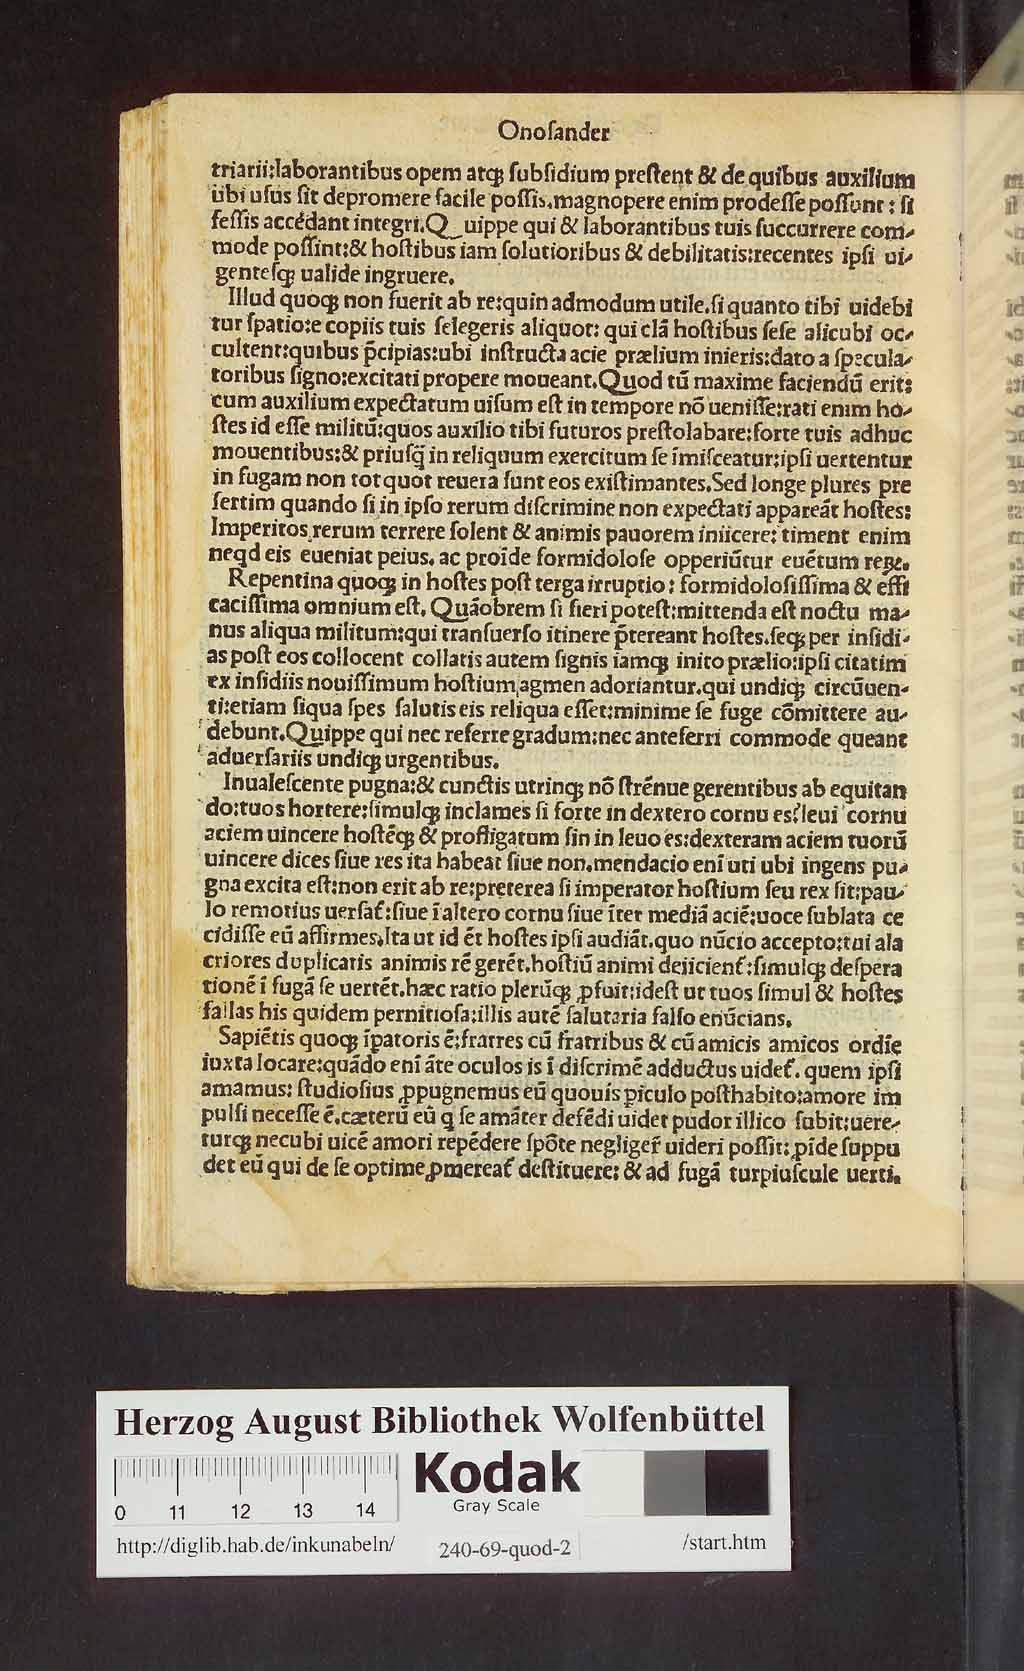 Onoſander
triarii:laborantibus opem atqꝫ ſubſidium preſtent & de quibus auxilium
ubi uſus ſit depromere facile poſſis.magnopere enim prodeſſe poſſunt : ſi
feſſis accédant integri.Quippe qui & laborantibus tuis ſuccurrere com-
mode poſſint:& hoſtibus iam ſolutioribus & debilitatis:recentes ipſi ui-
genteſqꝫ ualide ingruere.
Illud quoqꝫ non fuerit ab re:quin admodum utile.ſi quanto tibi uidebi
tur ſpatio:e copiis tuis ſelegeris aliquot: qui clā hoſtibus ſeſe alicubi oc-
cultent:quibus p̄cipias:ubi inſtructa acie prælium inieris:dato a ſpecula-
toribus ſigno:excitati propere moueant.Quod tū maxime faciendū erit:
cum auxilium expectatum uiſum eſt in tempore nō ueniſſe:rati enim ho-
ſtes id eſſe militū:quos auxilio tibi futuros preſtolabare:forte tuis adhuc
mouentibus:& priuſq̄ in reliquum exercitum ſe īmiſceatur:ipſi uertentur
in fugam non tot quot reuera ſunt eos exiſtimantes.Sed longe plures pre
ſertim quando ſi in ipſo rerum diſcrimine non expectati appareāt hoſtes:
Imperitos rerum terrere ſolent & animis pauorem iniicere: timent enim
neqd eis eueniat peius. ac proīde formidoloſe opperiūtur euētum reꝝ.
Repentina quoqꝫ in hoſtes poſt terga irruptio: formidoloſiſſima & effi
caciſſima omnium eſt. Quāobrem ſi fieri poteſt:mittenda eſt noctu ma-
nus aliqua militum:qui tranſuerſo itinere p̄tereant hoſtes.ſeqꝫ per inſidi-
as poſt eos collocent collatis autem ſignis iamqꝫ inito prælio:ipſi citatim
ex inſidiis nouiſſimum hoſtium agmen adoriantur.qui undiqꝫ circūuen-
ti:etiam ſiqua ſpes ſalutis eis reliqua eſſet:minime ſe fuge cōmittere au-
debunt.Quippe qui nec referre gradum:nec anteferri commode queant
aduerſariis undiqꝫ urgentibus.
Inualeſcente pugna:& cunctis utrinqꝫ nō ſtrēnue gerentibus ab equitan
do:tuos hortere:ſimulqꝫ inclames ſi forte in dextero cornu es:leui cornu
aciem uincere hoſtēqꝫ & profligatum ſin in leuo es:dexteram aciem tuorū
uincere dices ſiue res ita habeat ſiue non.mendacio enī uti ubi ingens pu-
gna excita eſt:non erit ab re:preterea ſi imperator hoſtium ſeu rex ſit:pau-
lo remotius uerſat᷑:ſiue ī altero cornu ſiue īter mediā aciē:uoce ſublata ce
cidiſſe eū affirmes.Ita ut id ēt hoſtes ipſi audiāt.quo nūcio accepto:tui ala
criores duplicatis animis rē gerēt.hoſtiū animi deiicient᷑:ſimulqꝫ deſpera
tionē ī fugā ſe uertēt.hæc ratio plerūqꝫ ꝓfuit:ideſt ut tuos ſimul & hoſtes
fallas his quidem pernitioſa:illis autē ſalutaria falſo enūcians.
Sapiētis quoqꝫ īpatoris ē:fratres cū fratribus & cū amicis amicos ordīe
iuxta locare:quādo enī āte oculos is ī diſcrimē adductus uidet᷑. quem ipſi
amamus: ſtudioſius ꝓpugnemus eū quouis piculo poſthabito:amore im
pulſi neceſſe ē.cæterū eū q ſe amāter defēdi uidet pudor illico ſubit:uere-
turqꝫ necubi uicē amori repēdere ſpōte negliger᷑ uideri poſſit:ꝓide ſuppu
det eū qui de ſe optime ꝓmereat᷑ deſtituere: & ad fugā turpiuſcule uerti.
Herzog August Bibliothek Wolfenbüttel
Kodak
Gray Scale
0 11 12 13 14
http://diglib.hab.de/inkunabeln/ 240-69-quod-2 /start.htm